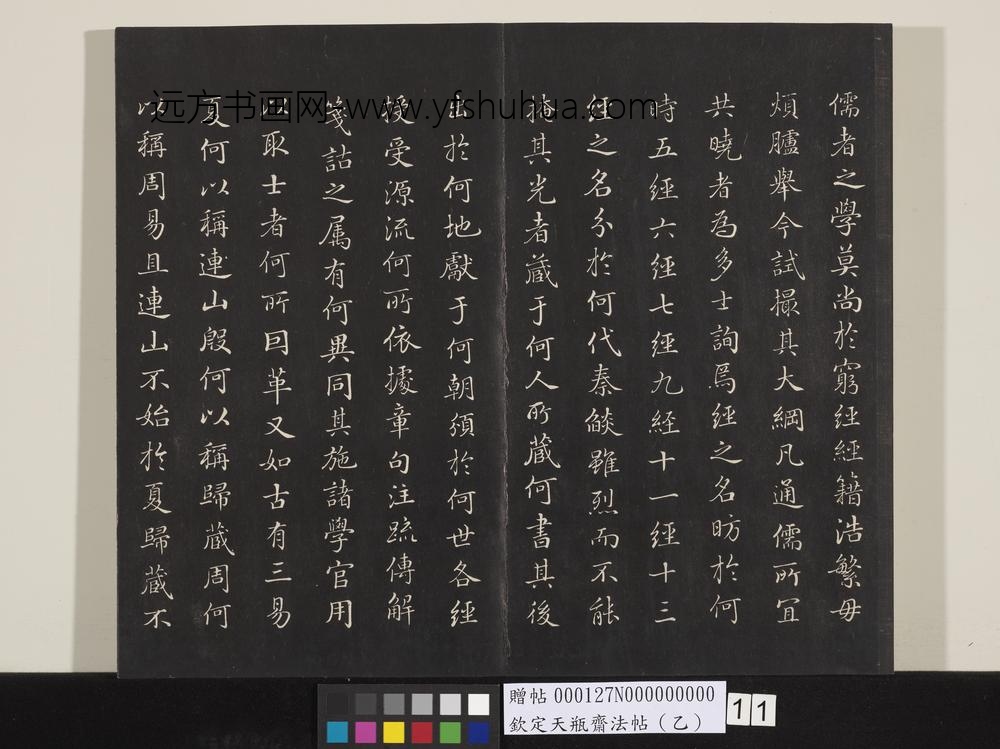 儒者之學莫尚於窮經經籍浩繁毋
煩臚舉今試撮其大綱凡通儒所宜
共曉者為多士詢焉經之名昉於何
時五經六經七經九經十一經十三
經之名分於何代秦燄雖烈而不能
掩其光者蔵于何人所蔵何書其後
出於何地獻于何朝頒於何世各經
授受源流何所依據章句注疏傳解
箋詁之属有何異同其施諸學官用
以取士者何所因革又如古有三易
夏何以稱連山殷何以稱歸蔵周何
以稱周易且連山不始於夏歸蔵不
远方书画网 www.yfshuhua.com
贈帖 000127N000000000
欽定天瓶齋法帖（乙）
11